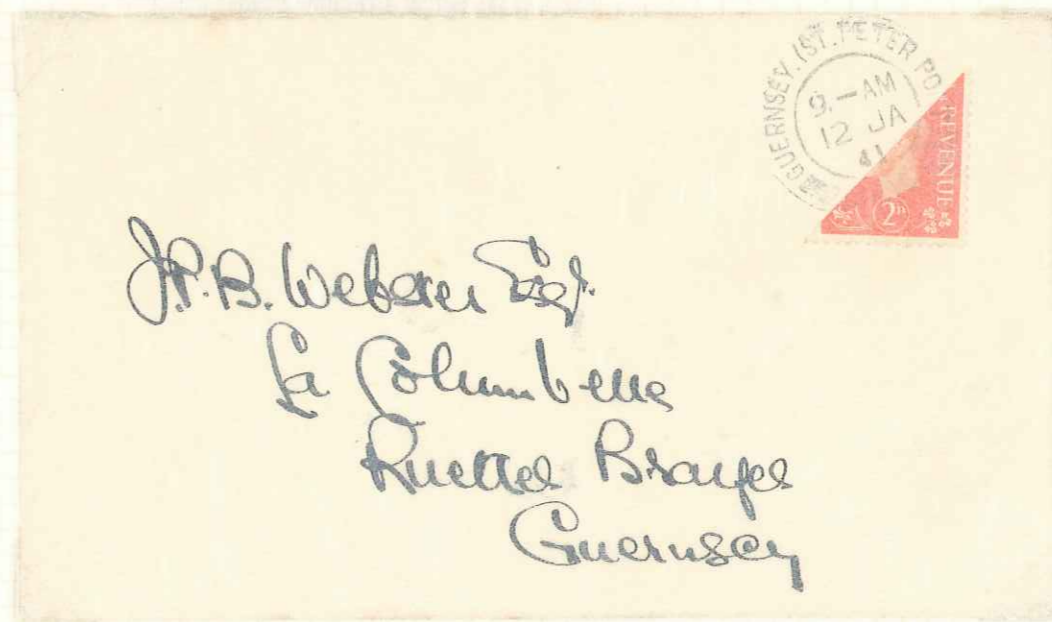 GUERNSEY. (ST. PETER PO
9.—AM
12 JA
41
REVENUE
2D
J.P.B. Webster Esq.
La Columbelle
Ruettes Brayes
Guernsey